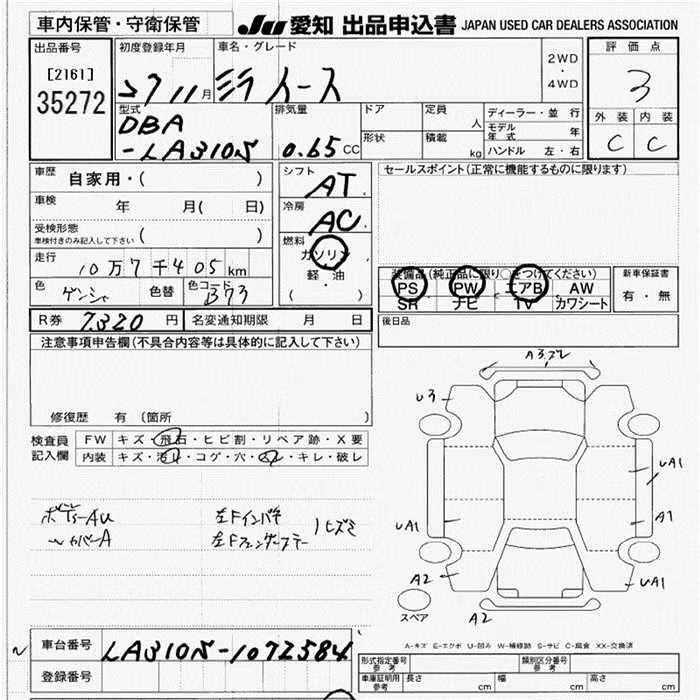 車内保管・守衛保管
JU 愛知 出品申込書 JAPAN USED CAR DEALERS ASSOCIATION
出品番号
[2161]
35272
初度登録年月
27 11月
車名・グレード
ミラ イース
2WD
・
4WD
評価点
3
外装 内装
C C
型式
DBA
-LA310S
排気量
0.65 CC
ドア
形状
定員
人
積載
kg
ディーラー・並行
モデル年式 年
ハンドル 左・右
車歴 自家用・( )
車検 年 月( 日)
受検形態 ( )
車検付きのみ記入して下さい
走行
10万7千405km
色 ゲンシャ 色替 色コード B73
シフト
AT
冷房
AC
燃料
ガソリン
・
軽・油
( )
セールスポイント(正常に機能するものに限ります)
装備品(純正品に限り○をつけてください)
PS PW エアB AW
SR ナビ TV カワシート
新車保証書
有・無
R券 7,320 円 名変通知期限 月 日
後日品
注意事項申告欄(不具合内容等は具体的に記入して下さい)
修復歴 有(箇所
検査員
記入欄
FW キズ・飛石・ヒビ割・リペア跡・X要
内装 キズ・汚レ・コゲ・穴・スレ・キレ・破レ
ボデーAU
〃カバーA
左Fインパネ
左Fフェンダーステー
ヒズミ
A3,ズレ
U3
UA1
UA1
A1
A2
UA1
スペア
A2
A-キズ E-エクボ U-凹み W-補修跡 S-サビ C-腐食 XX-交換済
車台番号 LA310S-1072584
登録番号
形式指定番号 参考
類別区分番号 参考
車庫証明用 参考 長さ cm 幅 cm 高さ cm